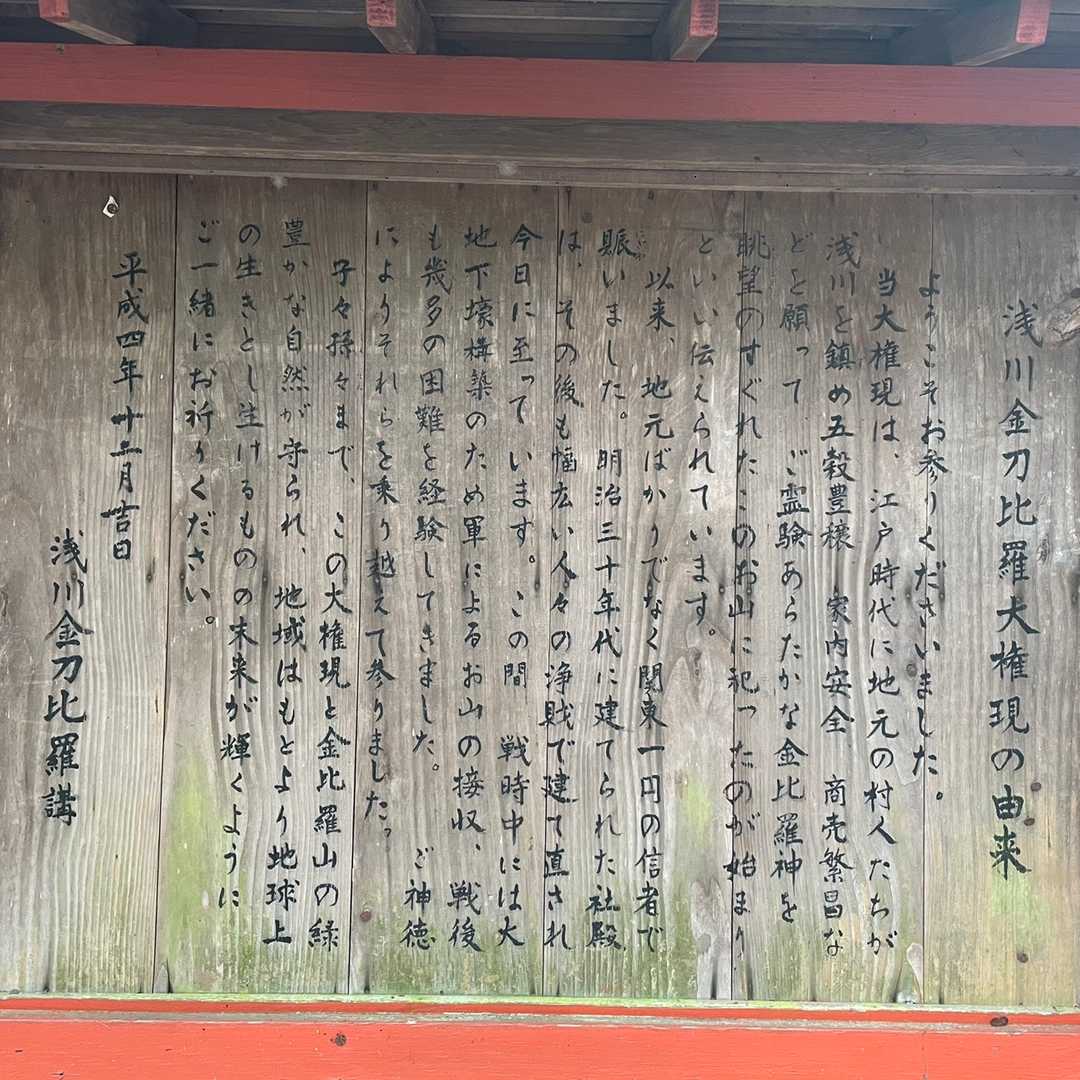 浅川金刀比羅大権現の由来
ようこそお参りくださいました。
当大権現は、江戸時代に地元の村人たちが
浅川を鎮め五穀豊穣 家内安全 商売繁昌な
どを願って、ご霊験あらたかな金比羅神を
眺望のすぐれたこのお山に祀ったのが始まり
といい伝えられています。
以来、地元ばかりでなく関東一円の信者で
賑いました。明治三十年代に建てられた社殿
は、その後も幅広い人々の浄財で建て直され
今日に至っています。この間 戦時中には大
地下壕構築のため軍によるお山の接収、戦後
も幾多の困難を経験してきました。ご神徳
によりそれらを乗り越えて参りました。
子々孫々まで、この大権現と金比羅山の緑
豊かな自然が守られ、地域はもとより地球上
の生きとし生けるものの未来が輝くように
ご一緒にお祈りください。
平成四年十二月吉日
浅川金刀比羅講